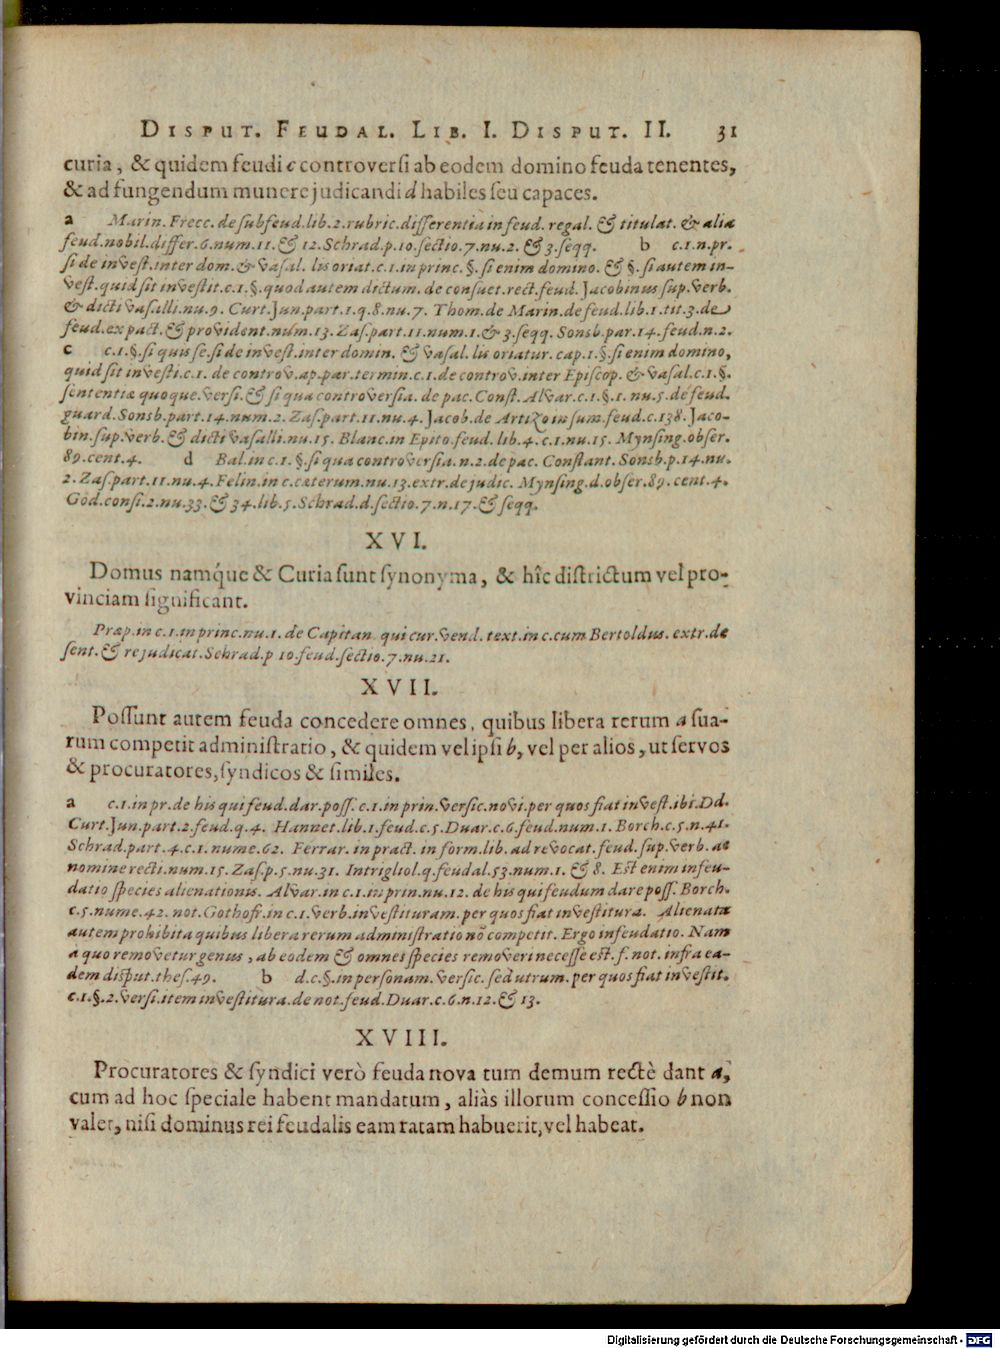 DISPUT. FEUDAL. LIB. I. DISPUT. II. 31
curia, & quidem feudi c controversi ab eodem domino feuda tenentes,
& ad fungendum munere judicandi d habiles seu capaces.
a Marin. Frecc. de subfeud. lib. 2. rubric. differentia in feud. regal. & titulat. & aliæ
feud. nobil. differ. 6. num. 11. & 12. Schrad. p. 10. sectio. 7. nu. 2. & 3. seqq. b c. 1. n. pr.
si de invest. inter dom. & vasal. lis oriat. c. 1. in princ. §. si enim domino. & §. si autem in-
vest. quid sit investit. c. 1. §. quod autem dictum. de consuet. rect. feud. Jacobinus sup. verb.
& dicti vasalli. nu. 9. Curt. Jun. part. 1. q. 8. nu. 7. Thom. de Marin. de feud. lib. 1. tit. 3. de
feud. ex pact. & provident. num. 13. Zas. part. 11. num. 1. & 3. seqq. Sonsb. par. 14. feud. n. 2.
c c. 1. §. si quis se. si de invest. inter domin. & vasal. lis oriatur. cap. 1. §. si enim domino,
quid sit investi. c. 1. de controv. ap. par. termin. c. 1. de controv. inter Episcop. & vasal. c. 1. §.
sententiæ quoque. versi. & si qua controversia. de pac. Const. Alvar. c. 1. §. 1. nu. 5. de feud.
guard. Sonsb. part. 14. num. 2. Zas. part. 11. nu. 4. Jacob. de Artizo in sum. feud. c. 138. Jaco-
bin. sup. verb. & dicti vasalli. nu. 15. Blanc. in Epito. feud. lib. 4. c. 1. nu. 15. Mynsing. obser.
89. cent. 4. d Bal. in c. 1. §. si qua controversia. n. 2. de pac. Constant. Sonsb. p. 14. nu.
2. Zas. part. 11. nu. 4. Felin. in c. cæterum. nu. 13. extr. de judic. Mynsing. d. obser. 89. cent. 4.
God. consi. 2. nu. 33. & 34. lib. 5. Schrad. d. sectio. 7. n. 17. & seqq.
XVI.
Domus namq́ue & Curia sunt synonyma, & hîc districtum vel pro-
vinciam significant.
Præp. in c. 1. in princ. nu. 1. de Capitan. qui cur. vend. text. in c. cum Bertoldus. extr. de
sent. & re judicat. Schrad. p 10. feud. sectio. 7. nu. 21.
XVII.
Possunt autem feuda concedere omnes, quibus libera rerum a sua-
rum competit administratio, & quidem vel ipsi b, vel per alios, ut servos
& procuratores, syndicos & similes.
a c. 1. in pr. de his qui feud. dar. poss. c. 1. in prin. versic. novi. per quos fiat invest. ibi. Dd.
Curt. Jun. part. 2. feud. q. 4. Hannet. lib. 1. feud. c. 5. Duar. c. 6. feud. num. 1. Borch. c. 5. n. 41.
Schrad. part. 4. c. 1. nume. 62. Ferrar. in pract. in form. lib. ad revocat. feud. sup. verb. ac
nomine recti. num. 15. Zas. p. 5. nu. 31. Intrigliol. q. feudal. 53. num. 1. & 8. Est enim infeu-
datio species alienationis. Alvar. in c. 1. in prin. nu. 12. de his qui feudum dare poss. Borch.
c. 5. nume. 42. not. Gothofr. in c. 1. verb. investituram. per quos fiat investitura. Alienatæ
autem prohibita quibus libera rerum administratio nõ competit. Ergo infeudatio. Nam
a quo removetur genus, ab eodem & omnes species removeri necesse est. f. not. infra ea-
dem disput. thes. 49. b d. c. §. in personam. versic. sed utrum. per quos fiat investit.
c. 1. §. 2. versi. item investitura. de not. feud. Duar. c. 6. n. 12. & 13.
XVIII.
Procuratores & syndici verò feuda nova tum demum rectè dant a,
cum ad hoc speciale habent mandatum, aliàs illorum concessio b non
valet, nisi dominus rei feudalis eam ratam habuerit, vel habeat.
Digitalisierung gefördert durch die Deutsche Forschungsgemeinschaft - DFG